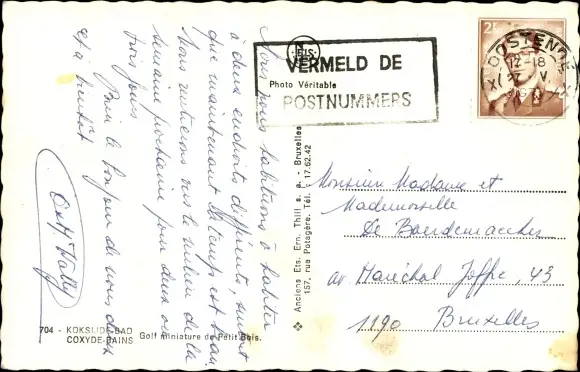 Nous nous habituons à habiter
à deux endroits différents, surtout
que maintenant le temps est beau.
Nous rentrerons vers le milieu de la
semaine prochaine pour deux ou
trois jours
Bien le bonjour de nous deux
et à bientôt
704 - KOKSIJDE-BAD
COXYDE-BAINS
Golf Miniature de Petit Bois.
Anciens Ets. Ern. Thill s. a. - Bruxelles
157, rue Potagère. Tél. 17.62.42
N
ETS
Photo Véritable
VERMELD DE
POSTNUMMERS
2F
OOSTENDE
12-18
V
Monsieur Madame et
Mademoiselle
De Baerdemaecker
av Maréchal Joffre, 43
1190 Bruxelles